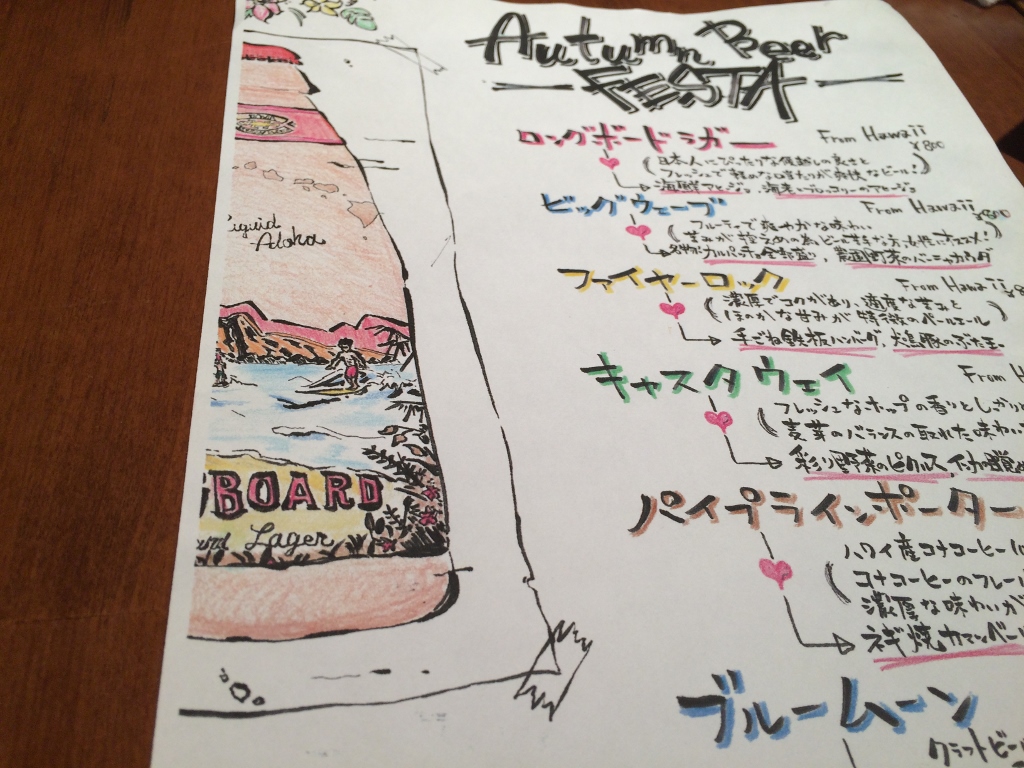 Autumn Beer
FESTA
ロングボードラガー From Hawaii
¥800
(日本人にぴったりな喉越しの良さと
フレッシュで
海鮮アヒージョ 海老とブロッコリーのアヒージョ
ビッグウェーブ From Hawaii ¥800
フルーティで爽やかな味わい
苦みが控えめの為ビールが苦手な方、女性にオススメ!)
カルパッチョ全部盛, 菜園野菜のバーニャカウダ
ファイヤーロック From Hawaii ¥8
(濃厚でコクがあり、適度な苦みと
ほのかな甘みが特徴のペールエール)
手ごね鉄板ハンバーグ,
キャスタウェイ From H
(フレッシュなホップの香りとしっかり
麦芽のバランスの取れた味わい
彩り野菜のピクルス
パイプラインポーター
ハワイ産コナコーヒー
(コナコーヒーのフレー
濃厚な味わいが
ネギ焼カマンベー
ブルームーン
クラフトビー
Liquid
Aloha
GBOARD
and Lager